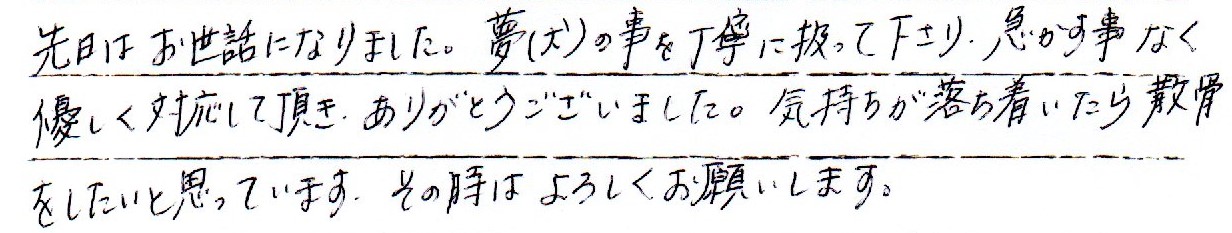 先日はお世話になりました。夢(犬)の事を丁寧に扱って下さり、急かす事なく
優しく対応して頂き、ありがとうございました。気持ちが落ち着いたら散骨
をしたいと思っています。その時はよろしくお願いします。